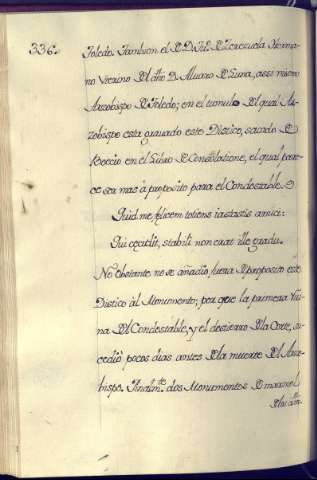 336.
Toledo. Tambien el S. D. Juan de Zerezuela Herma-
no Uterino del dho D. Alvaro de Luna, assi mismo
Arzobispo de Toledo; en el tumulo del qual Ar-
zobispo esta gravado este Distico, sacado de
Boecio en el Libro de Consolatione, el qual pare-
ce ser mas à proposito para el Condestable.
Quid me felicem toties iactastis amici:
Qui cecidit, stabili non erat ille gradu.
No obstante no se añadiò fuera de proposito este
Distico àl Monumento; por que la primera Rui-
na del Condestable, y el destierro de la Corte, su-
cediò pocos dias antes de la muerte del Arzo-
bispo. Finalm.te dos Monumentos de marmol